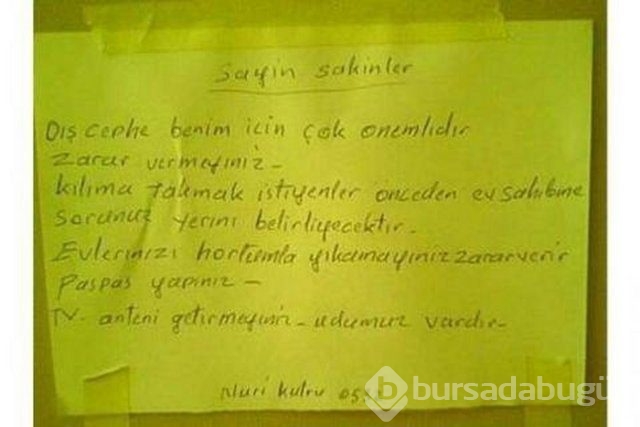 Sayin sakinler
Dış cephe benim için çok onemlidir
Zarar vermeyiniz -
kılıma takmak istiyenler önceden ev sahibine
sorunuz yerini belirliyecektir.
Evlerinizi hortumla yıkamayınız zarar verir
Paspas yapınız -
TV. anteni getirmeyiniz - udumuz vardır -
Nuri
bursadabugü